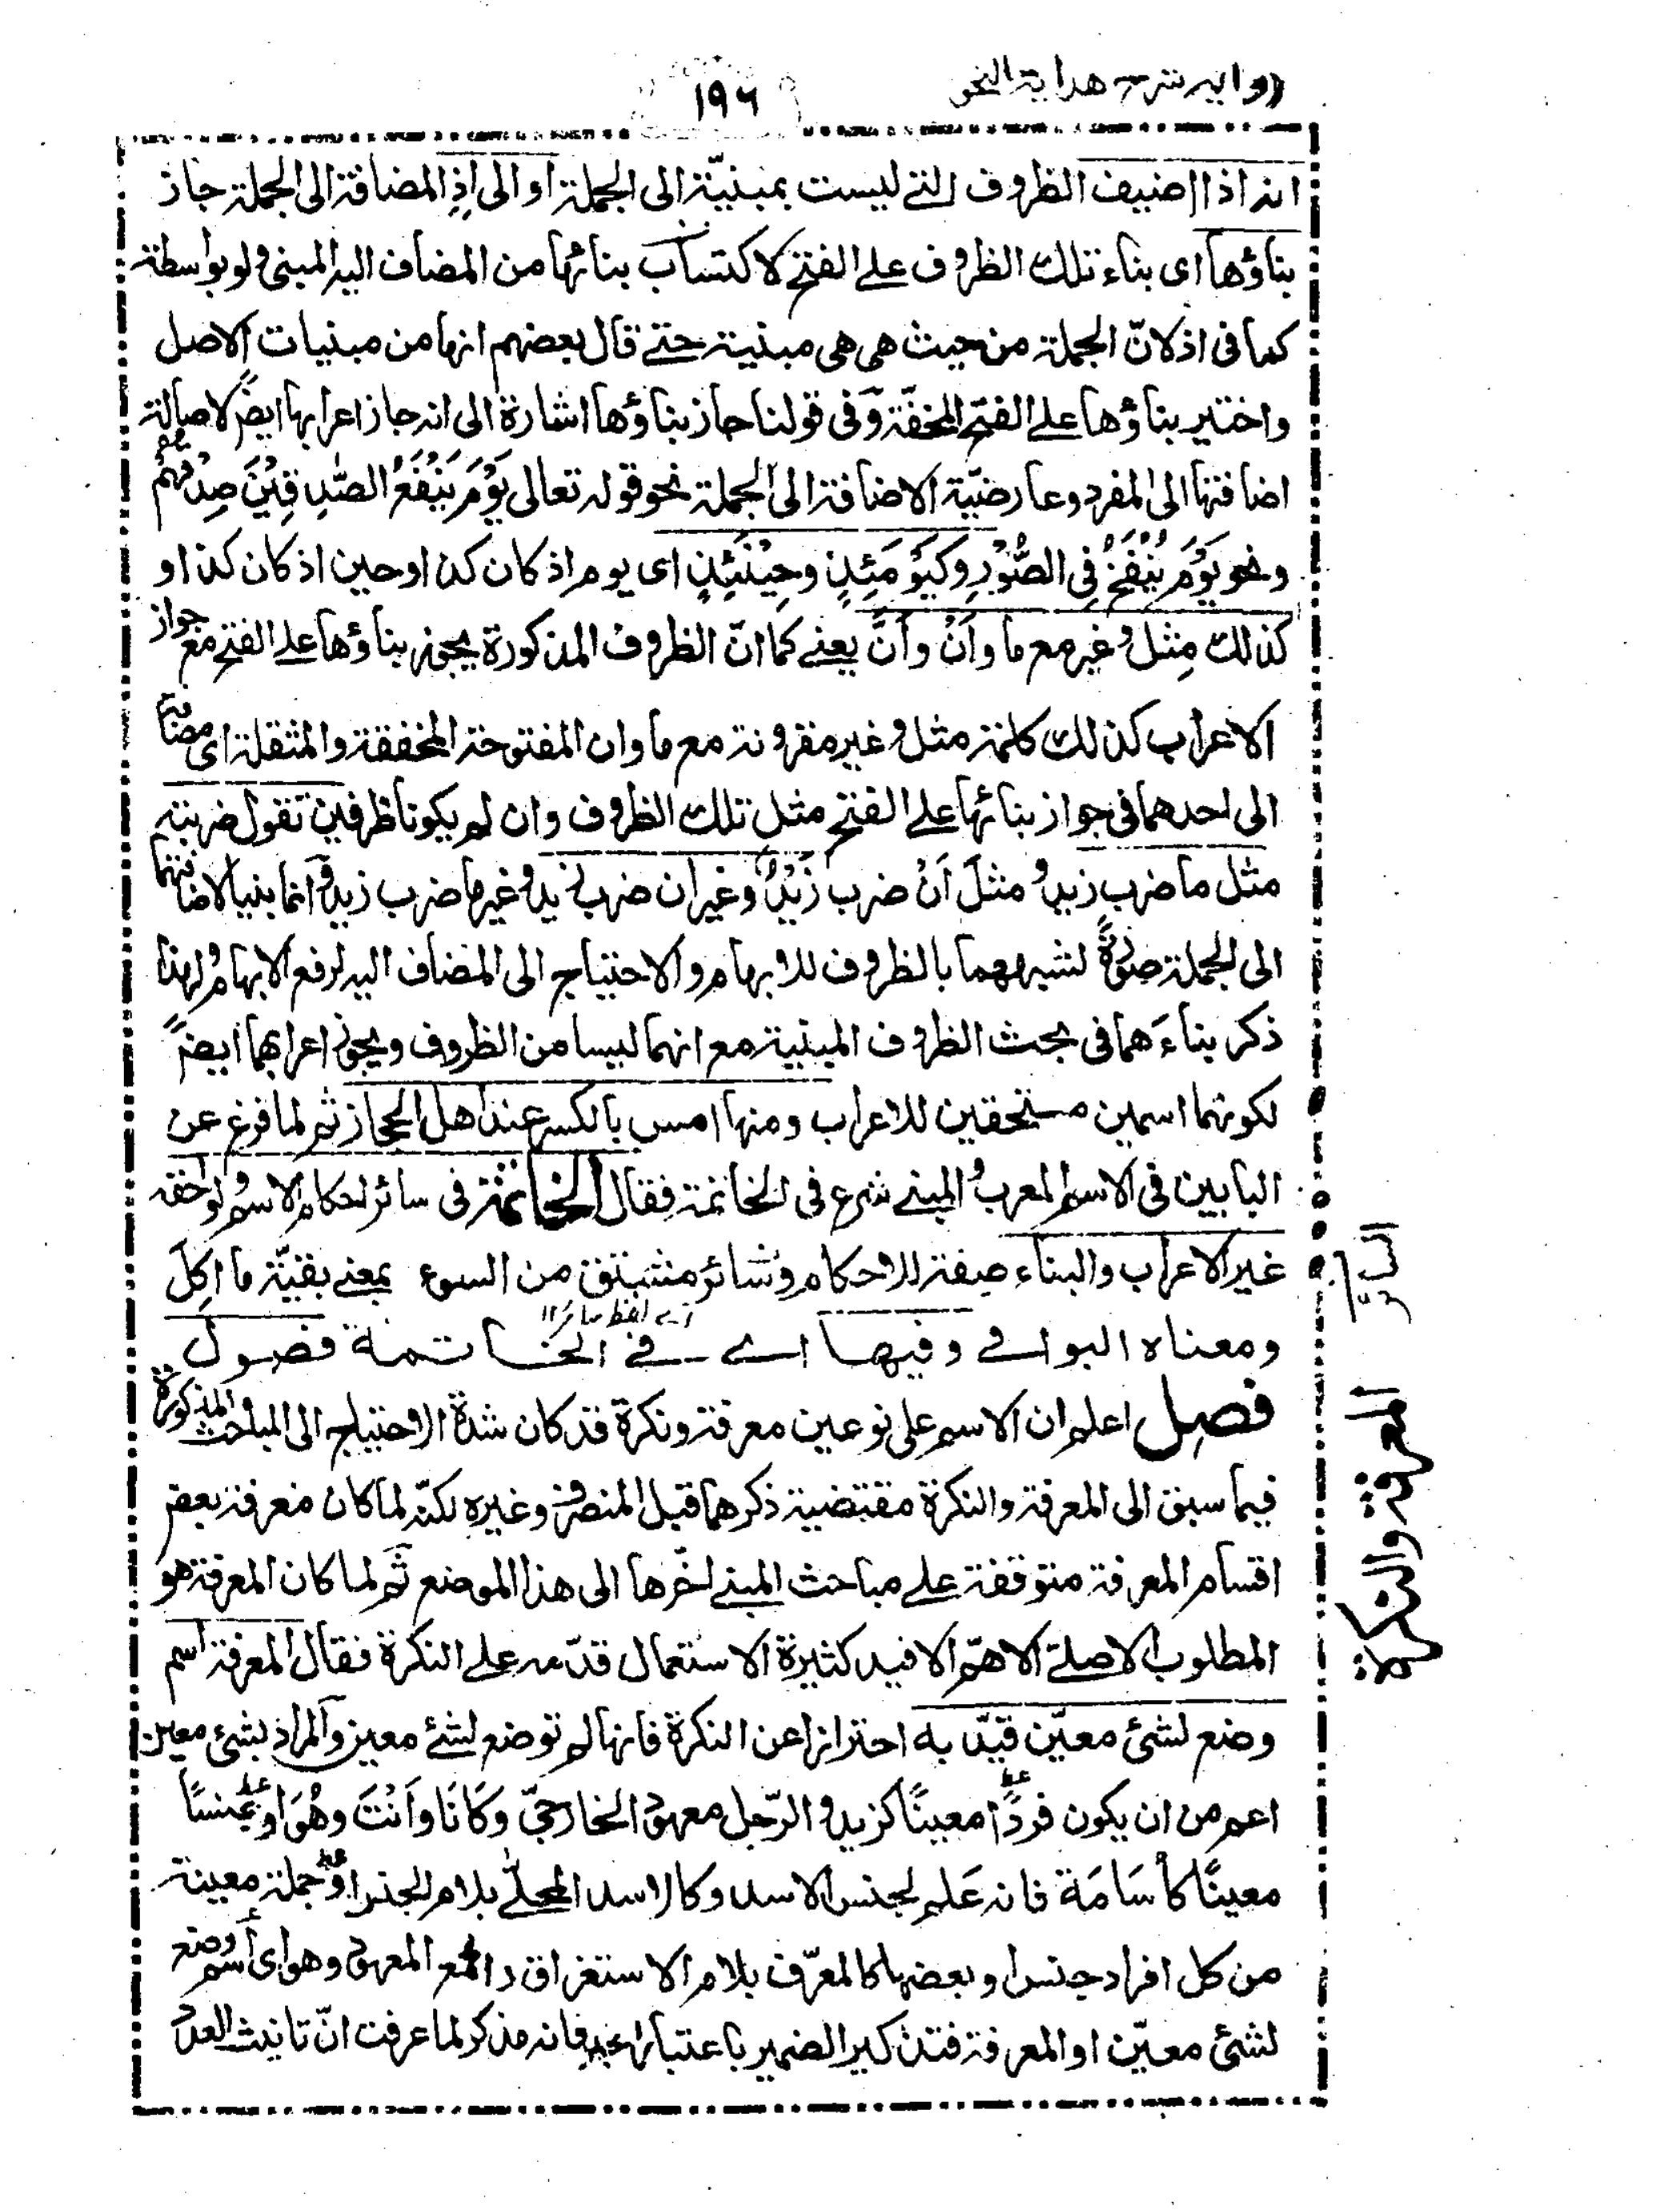 درايه شرح هداية النحو
١٩٦
انه اذا اضيف الظروف التے ليست بمبنيّة الى الجملة او الى اذٍ المضافة الى الجملة جاز
بناؤها اى بناء تلك الظروف علے الفتح لاكتساب بنائها من المضاف اليه المبنى ولو بواسطة
كما فى اذ لانّ الجملة من حيث هى هى مبنية حتے قال بعضهم انها من مبنيات الاصل
واختير بناؤها علے الفتح للخفّة وفى قولنا جاز بناؤها اشارة الى انه جاز اعرابها ايضً لاصالة
اضافتها الى المفرد وعارضيّة الاضافة الى الجملة نحو قوله تعالى يَوْمَ يَنْفَعُ الصّٰدِقِيْنَ صِدْقُهُمْ
ونحو يَوْمَ يُنْفَخُ فِى الصُّوْرِ وكَيَوْمَئِذٍ وحِيْنَئِذٍ اى يوم اذ كان كذا وحين اذ كان كذا و
كذلك مِثْل وغير مع ما واَنْ واَنَّ يعنے كما انّ الظروف المذكورة يجوز بناؤها علے الفتح مع جواز
الاعراب كذلك كلمة مثل وغير مقرونة مع ما وان المفتوحة المخففة والمثقلة اى مضافة
الى احدهما فى جواز بنائها علے الفتح مثل تلك الظروف وان لم يكونا ظرفين تقول ضربته
مثل ما ضرب زيد و مثلَ اَنْ ضرب زَيْدٌ وغير ان ضرب زيد وغير ما ضرب زيد وانما بنيا لاضافتهما
الى الجملة صورةً لشبههما بالظروف للابهام والاحتياج الى المضاف اليه لرفع الابهام ولهذا
ذكر بناءَهما فى بحث الظروف المبنية مع انهما ليسا من الظروف ويجوز اعرابهما ايضً
لكونهما اسمين مستحقين للاعراب ومنها امس بالكسر عند اهل الحجاز ثم لما فرغ عن
البابين فى الاسم المعرب والمبنے شرع فى الخاتمة فقال الخاتمة فى سائر احكام الاسم ولواحقه
غير الاعراب والبناء صفة للاحكام وسائر مشتق من السوع بمعنے بقيّة ما اكل
اے لفظ سائر ١٢
ومعناه البواقے وفيها اے فے الخاتمة فصول
فصل اعلم ان الاسم على نوعين معرفة ونكرة قد كان شدة الاحتياج الى المباحث المذكورة
فيما سبق الى المعرفة والنكرة مقتضية ذكرهما قبل المنصرف وغيره لكنّه لما كان معرفة بعض
اقسام المعرفة متوقفة علے مباحث المبنے اخّرها الى هذا الموضع ثم لما كان المعرفة هو
المطلوب الاصلے الاهمّ الافيد كثيرة الاستعمال قدّمه علے النكرة فقال المعرفة اسم
وضع لشئ معيّن قيّد به احترازا عن النكرة فانها لم توضع لشئ معين والمراد بشئ معين
اعم من ان يكون فردًا معينًا كزيد والرّجل معهود الخارجىّ وكَاَنَا واَنْتَ وهُوَ او جنسًا
معينًا كأُسَامَة فانه عَلم لجنس الاسد وكالاسد المحلّے بلام الجنس او جملة معينة
من كل افراد جنس او بعضها كالمعرّف بلام الاستغراق و الجمع المعهود وهو اى اسم وضع
لشئ معيّن او المعرفة فتذكير الضمير باعتبار خبره فانه مذكر لما عرفت انّ تانيث العدد
المعرفة والنكرة